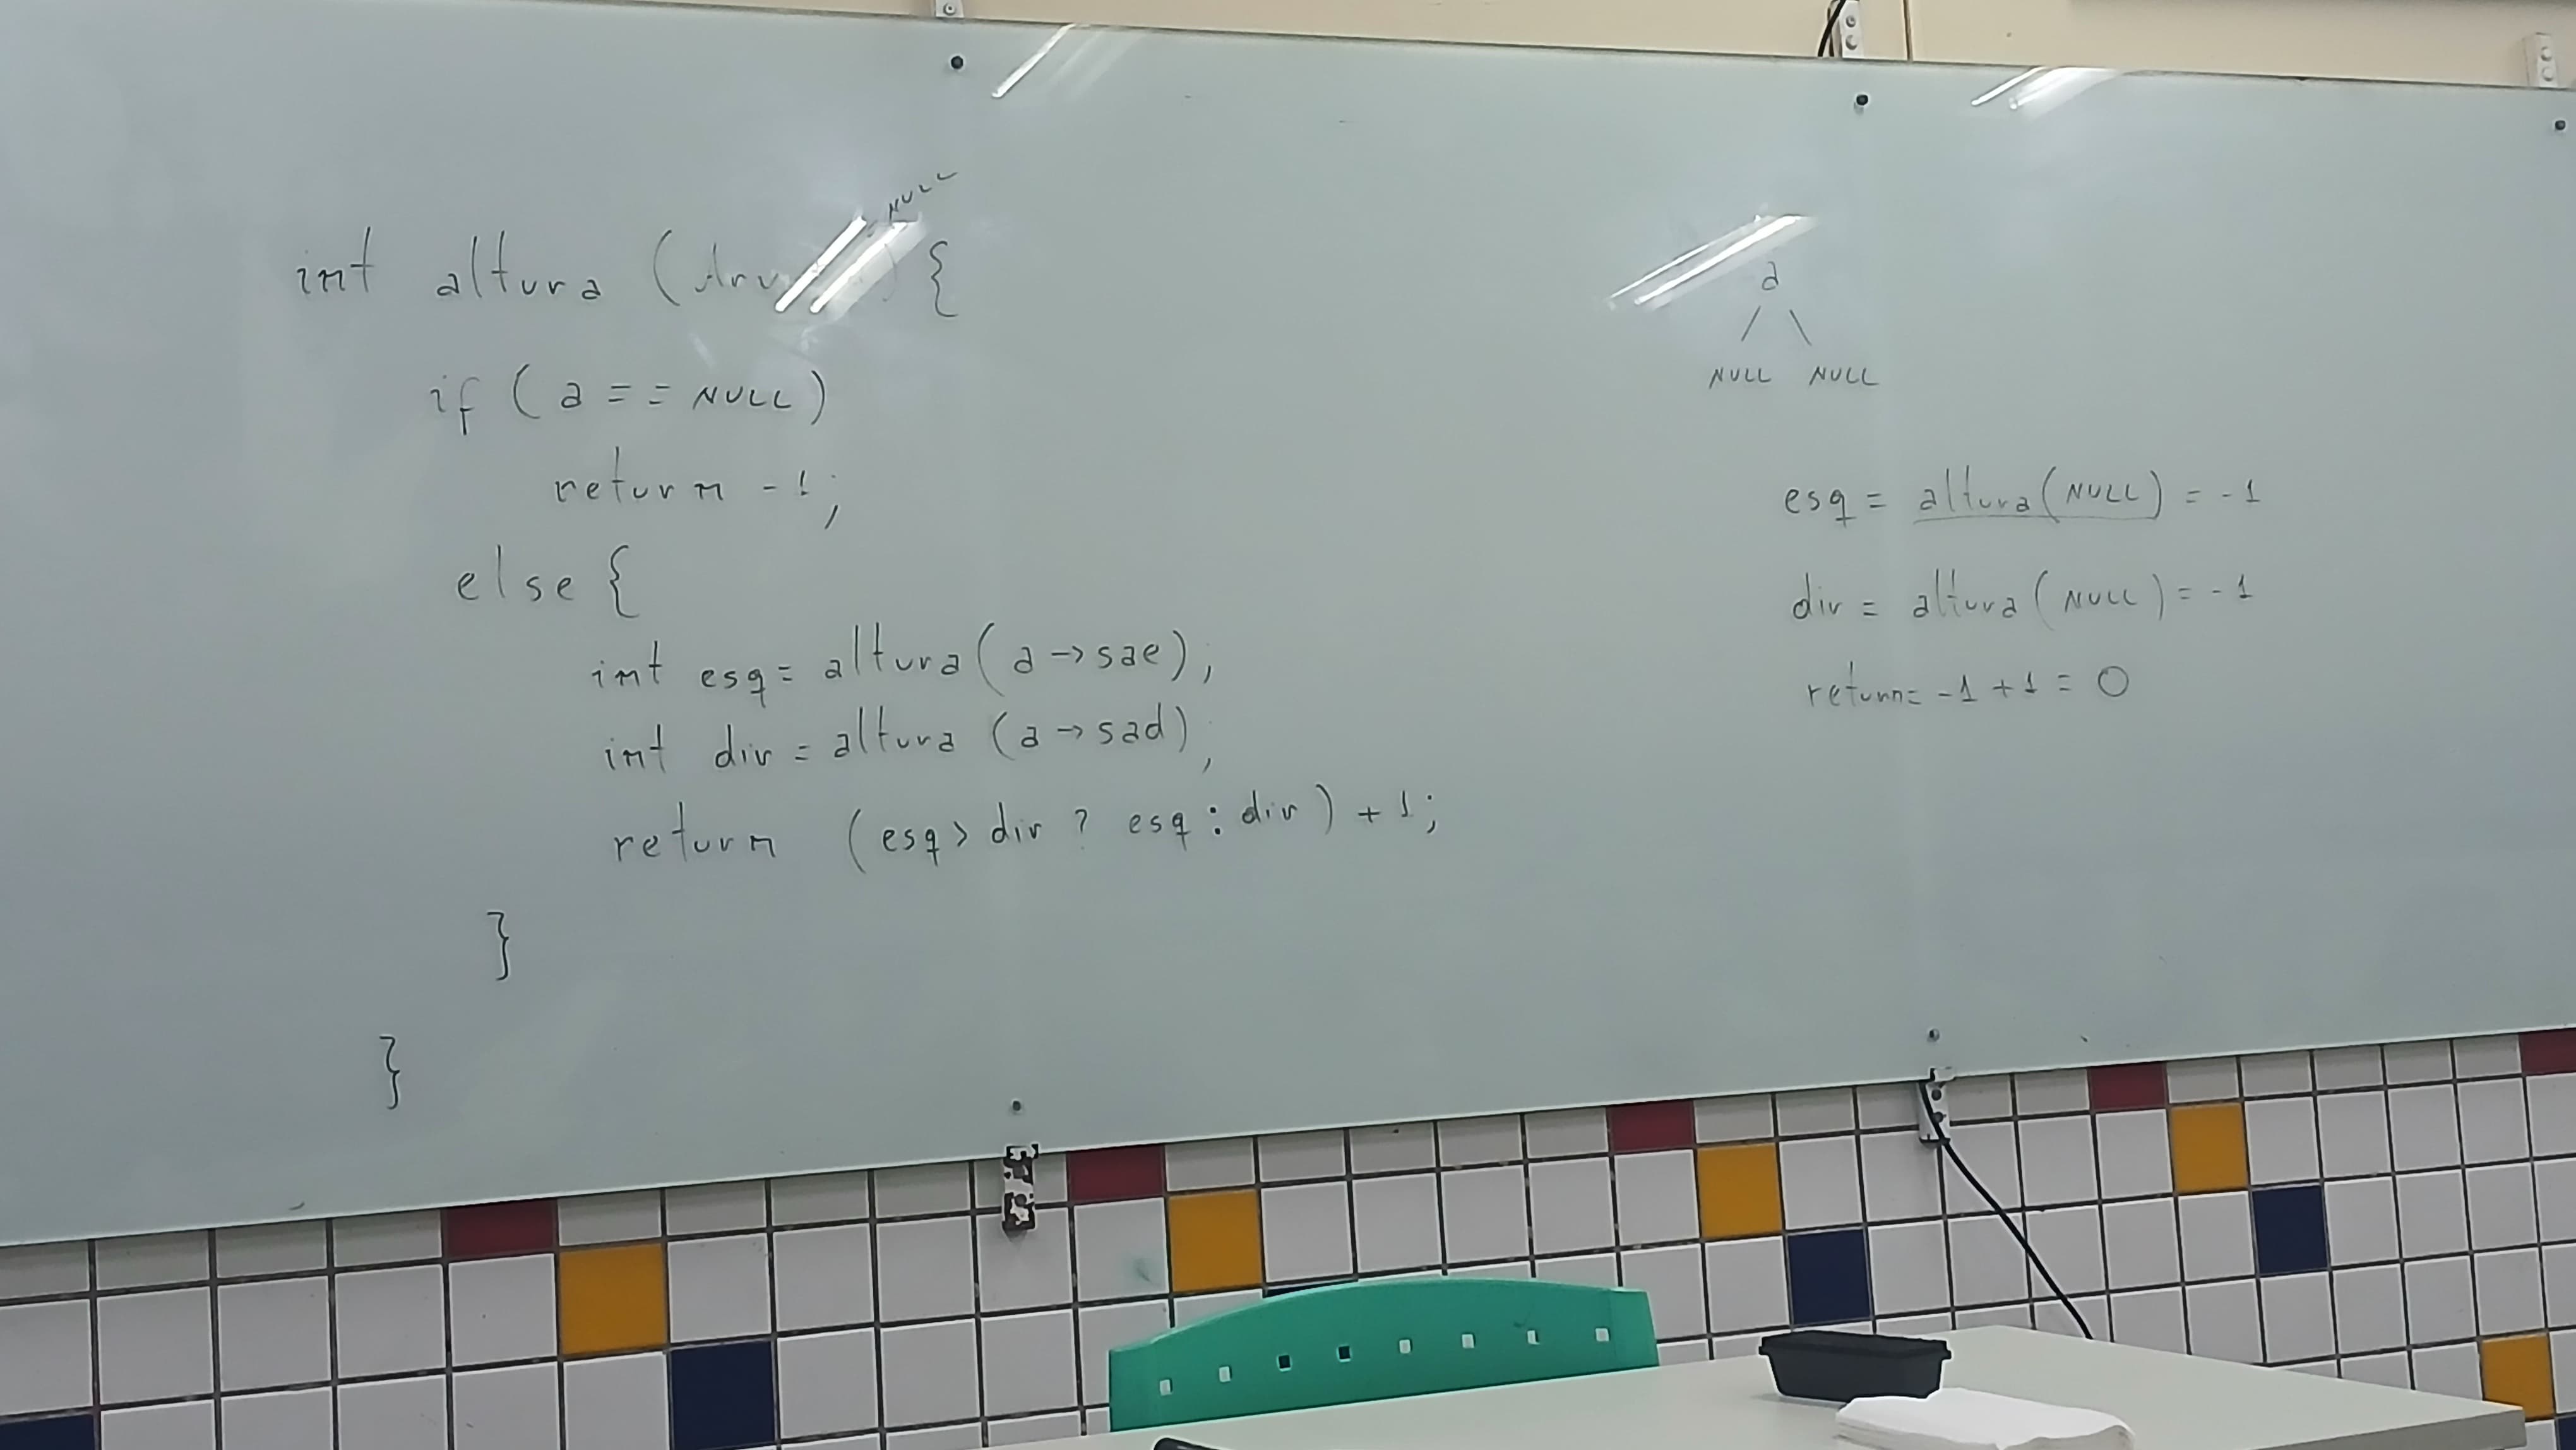 NULL
int altura ( ) {
if ( a == NULL )
return -1;
else {
int esq = altura ( a -> sae );
int dir = altura ( a -> sad );
return ( esq > dir ? esq : dir ) + 1;
}
}
a
/ \
NULL NULL
esq = altura ( NULL ) = -1
dir = altura ( NULL ) = -1
return = -1 + 1 = 0